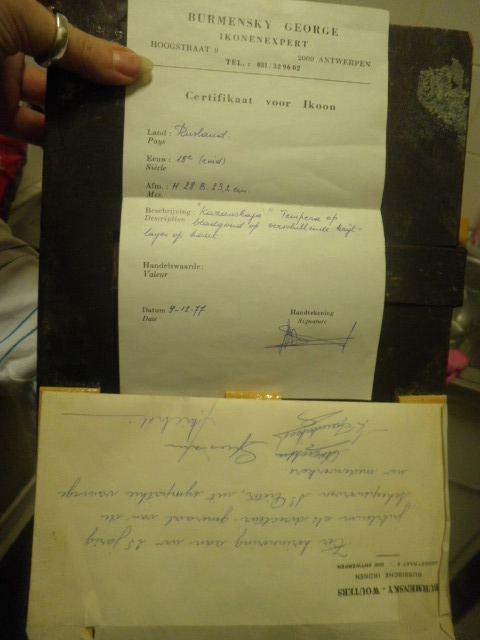 BURMENSKY GEORGE
IKONENEXPERT
HOOGSTRAAT 9 2000 ANTWERPEN
TEL. : 031/32 96 62
Certifikaat voor Ikoon
Land : Rusland
Pays
Eeuw : 18e (eind)
Siècle
Afm. : H. 28 B. 23,2 cm.
Mes.
Beschrijving : "Kazanskaja" Tempera op
Description bladgoud op verschillende krijt-
lagen op hout.
Handelswaarde :
Valeur
Datum 9-12-77 Handtekening
Date Signature
BURMENSKY - WOUTERS
RUSSISCHE IKONEN
HOOGSTRAAT 9 2000 ANTWERPEN
Ter herinnering aan uw 25 jarig
jubileum als directeur generaal van de
Dr. met sympathie vanwege
uw medewerkers